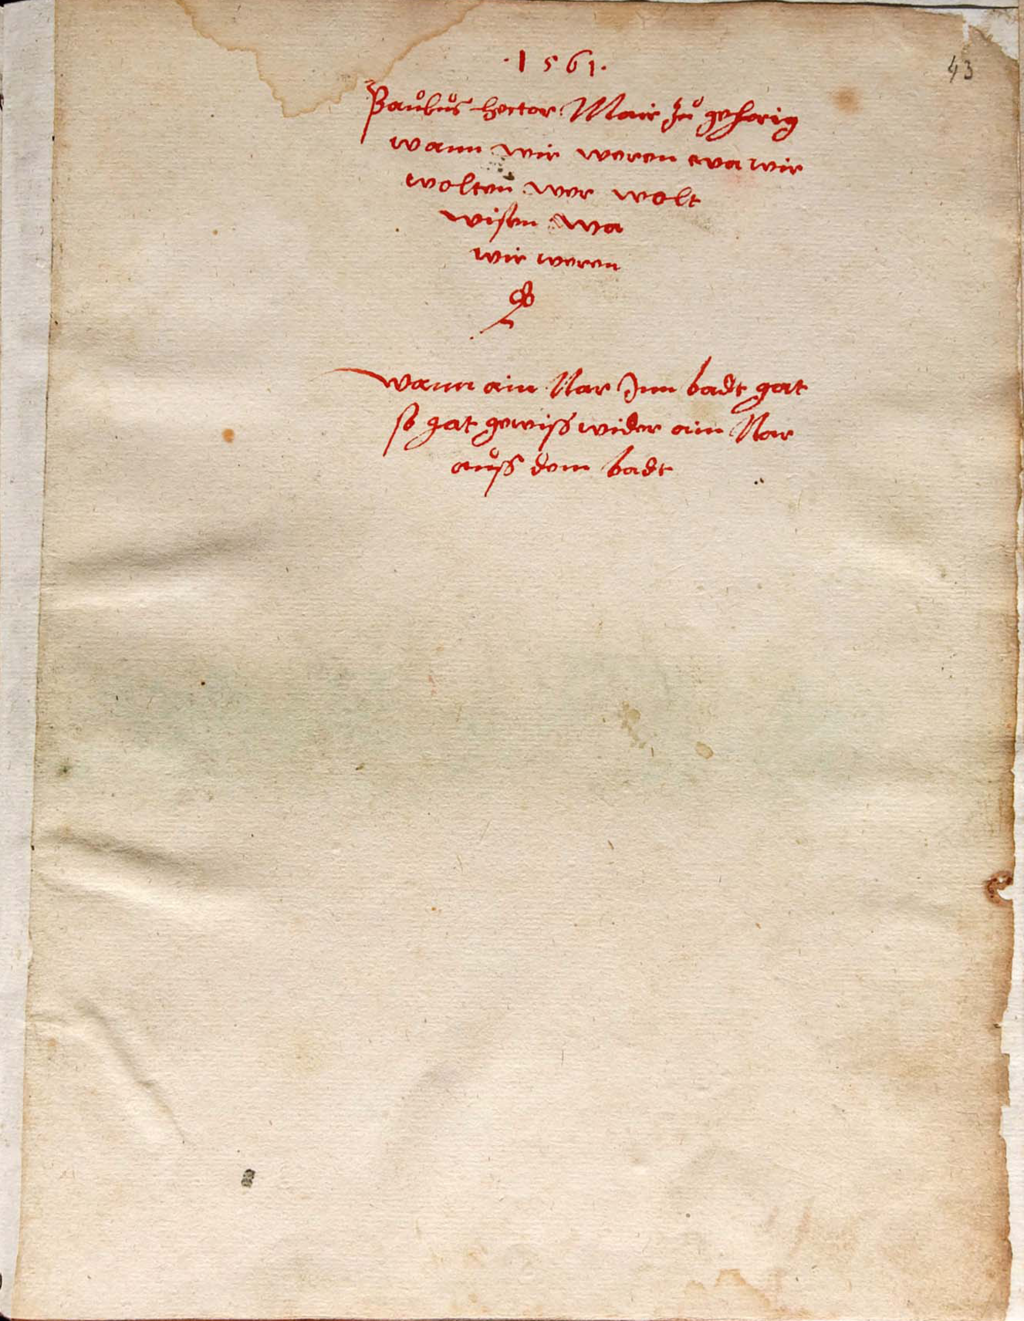 ·1561·
43
Paulus hector Mair zů gehorig
wann wir weren wa wir
wolten wer wolt
wisen wa
wir weren
wann ain Nar Inn badt gat
so gat gewiß wider ain Nar
auß dem badt